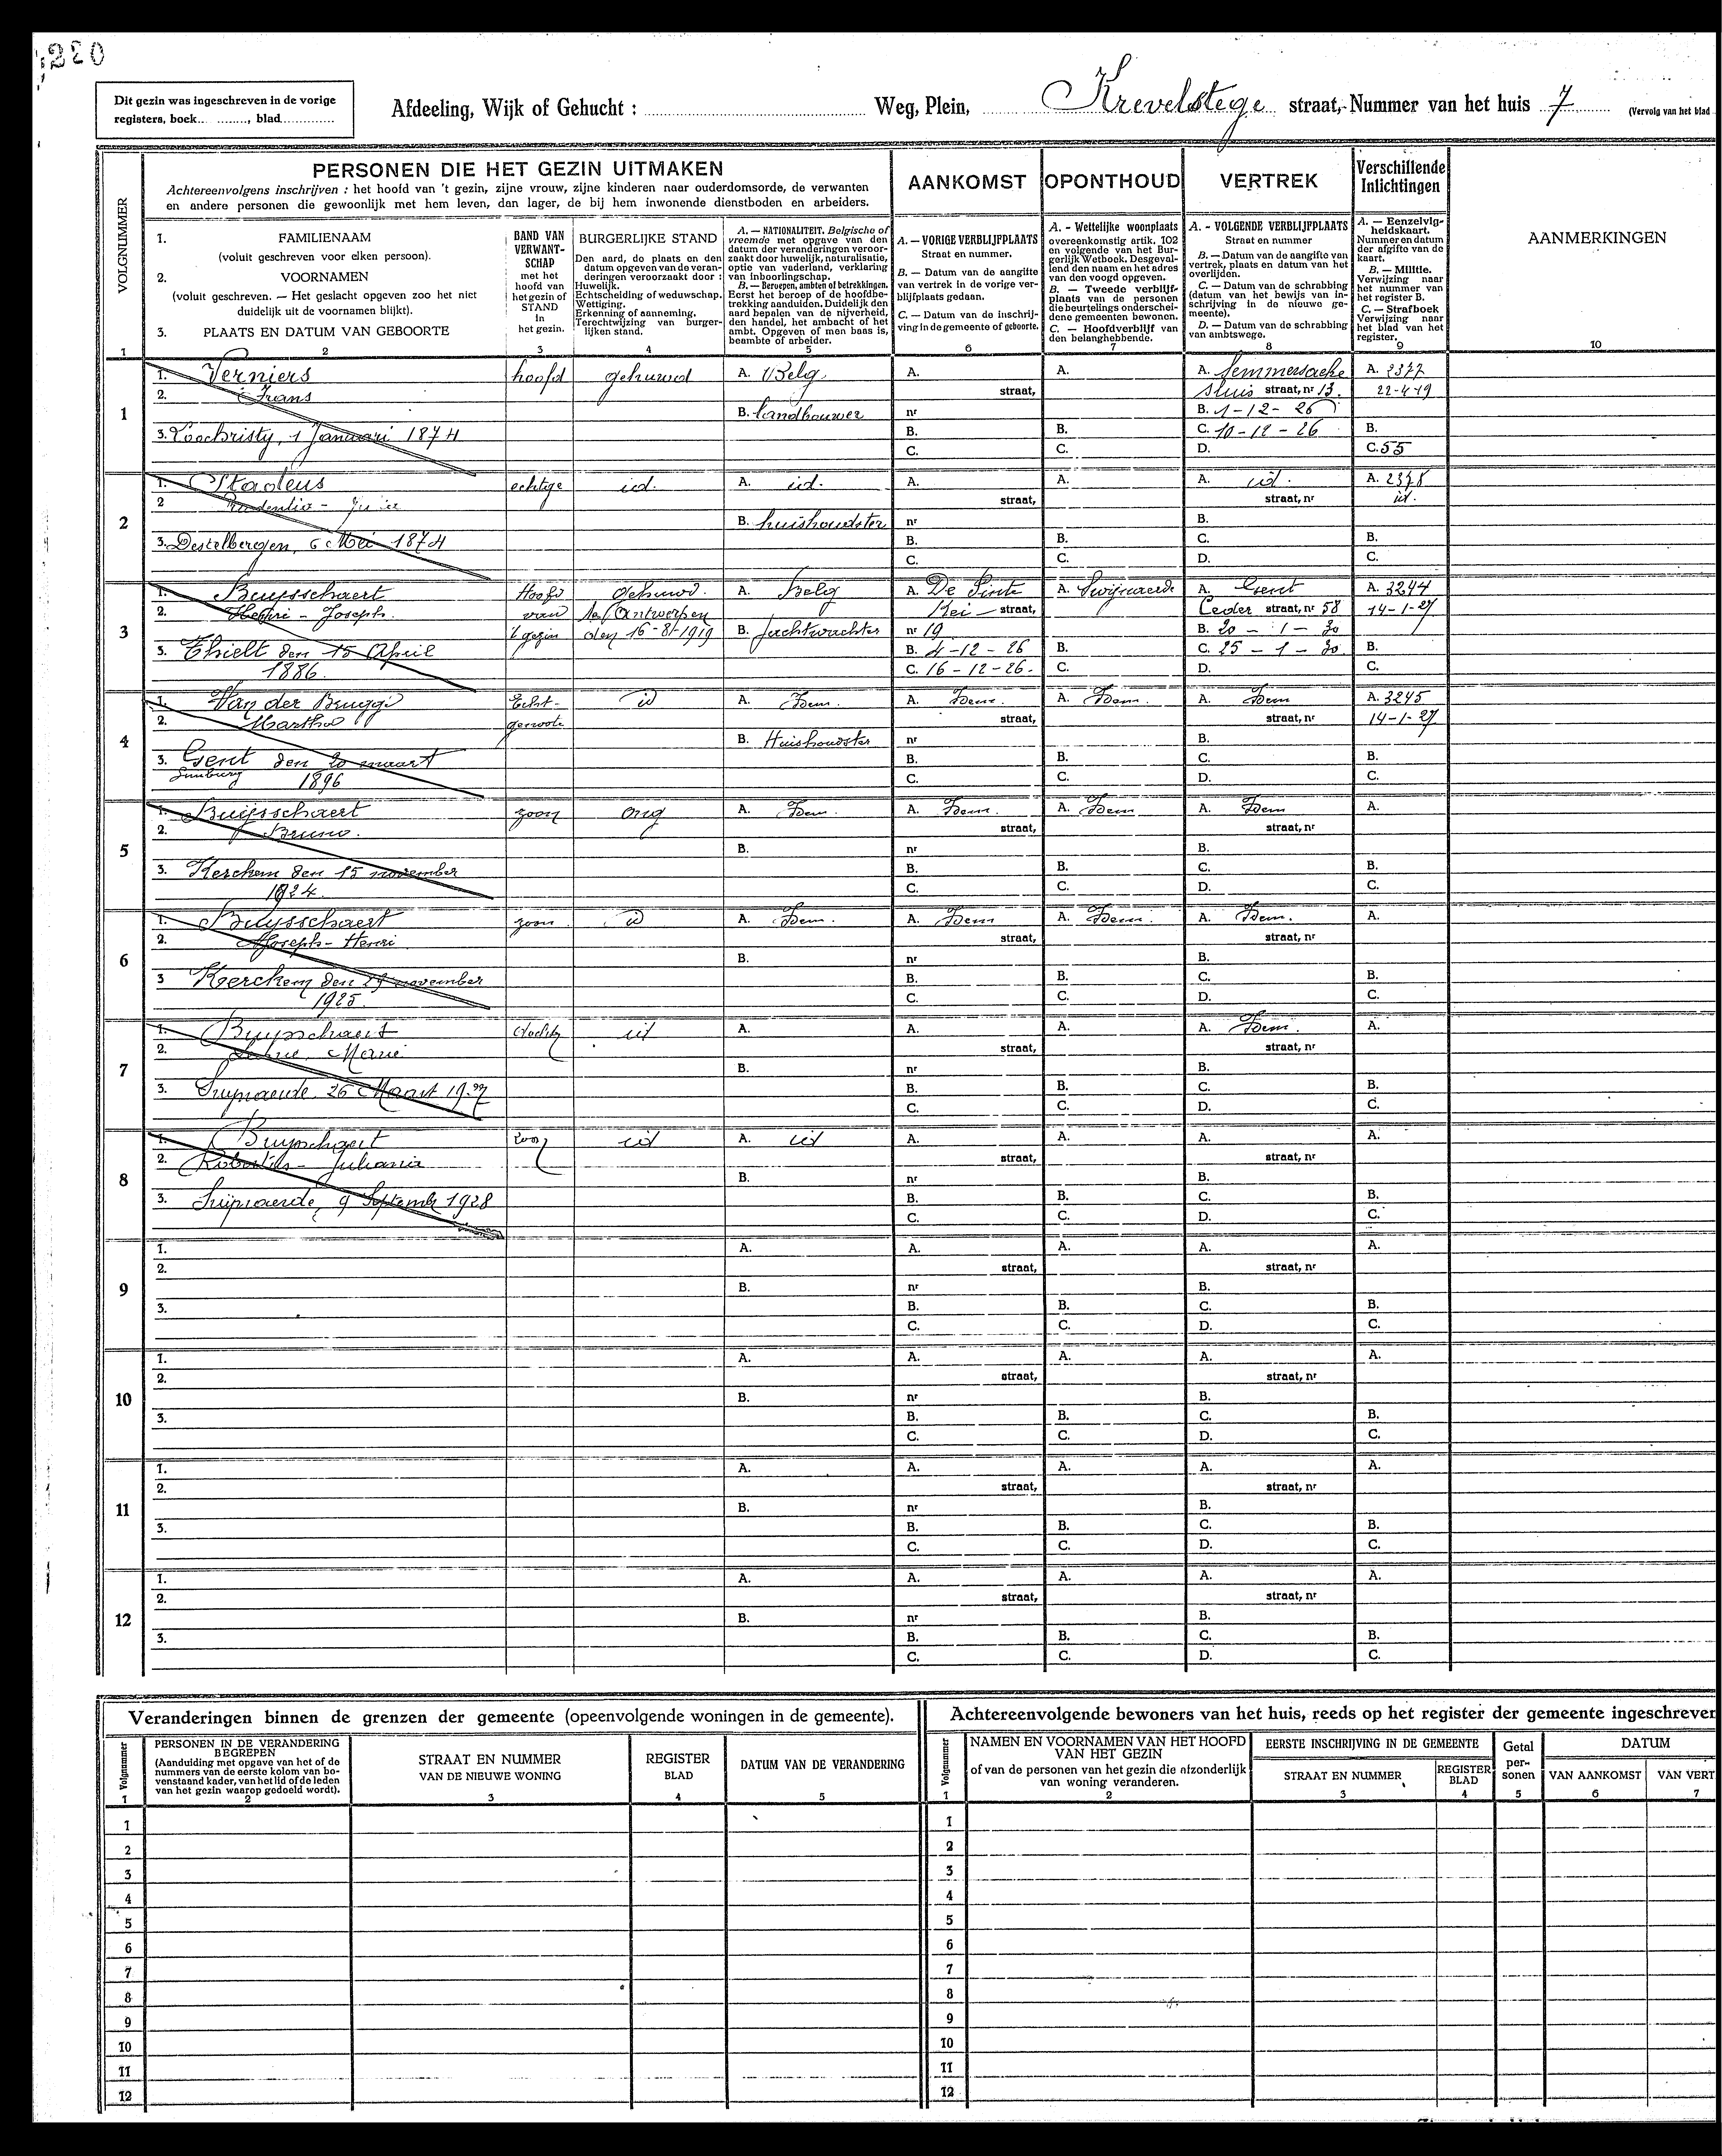 Dit gezin was ingeschreven in de vorige
registers, boek.........., blad..........
Afdeeling, Wijk of Gehucht : Weg, Plein, Krevelstege straat, Nummer van het huis 7 (Vervolg van het blad
PERSONEN DIE HET GEZIN UITMAKEN
Achtereenvolgens inschrijven : het hoofd van 't gezin, zijne vrouw, zijne kinderen naar ouderdomsorde, de verwanten
en andere personen die gewoonlijk met hem leven, dan lager, de bij hem inwonende dienstboden en arbeiders.
AANKOMST OPONTHOUD VERTREK Verschillende Inlichtingen
VOLGNUMMER
1. FAMILIENAAM
(voluit geschreven voor elken persoon).
2. VOORNAMEN
(voluit geschreven. — Het geslacht opgeven zoo het niet
duidelijk uit de voornamen blijkt).
3. PLAATS EN DATUM VAN GEBOORTE
BAND VAN
VERWANT-
SCHAP
met het
hoofd van
het gezin of
STAND
in
het gezin.
BURGERLIJKE STAND
Den aard, de plaats en den
datum opgeven van de veran-
deringen veroorzaakt door :
Huwelijk.
Echtscheiding of weduwschap.
Wettiging.
Erkenning of aanneming.
Terechtwijzing van burger-
lijken stand.
A. — NATIONALITEIT. Belgische of
vreemde met opgave van den
datum der veranderingen veroor-
zaakt door huwelijk, naturalisatie,
optie van vaderland, verklaring
van inboorlingschap.
B. — Beroepen, ambten of betrekkingen.
Eerst het beroep of de hoofdbe-
trekking aanduiden. Duidelijk den
aard bepalen van de nijverheid,
den handel, het ambacht of het
ambt. Opgeven of men baas is,
beambte of arbeider.
A. — VORIGE VERBLIJFPLAATS
Straat en nummer.
B. — Datum van de aangifte
van vertrek in de vorige ver-
blijfplaats gedaan.
C. — Datum van de inschrij-
ving in de gemeente of geboorte.
A. - Wettelijke woonplaats
overeenkomstig artik. 102
en volgende van het Bur-
gerlijk Wetboek. Desgeval-
lend den naam en het adres
van den voogd opgeven.
B. — Tweede verblijf-
plaats van de personen
die beurtelings onderschei-
dene gemeenten bewonen.
C. — Hoofdverblijf van
den belanghebbende.
A. - VOLGENDE VERBLIJFPLAATS
Straat en nummer
B. — Datum van de aangifte van
vertrek, plaats en datum van het
overlijden.
C. — Datum van de schrabbing
(datum van het bewijs van in-
schrijving in de nieuwe ge-
meente).
D. — Datum van de schrabbing
van ambtswege.
A. — Eenzelvig-
heidskaart.
Nummer en datum
der afgifte van de
kaart.
B. — Militie.
Verwijzing naar
het nummer van
het register B.
C. — Strafboek
Verwijzing naar
het blad van het
register.
AANMERKINGEN
1 2 3 4 5 6 7 8 9 10
1
1. Verniers hoofd gehuwd A. Belg A. A. A. Semmersacke A. 2377
2. Frans straat, sluis straat, nr 13. 22-4-19
B. landbouwer nr B. 1-12-26
3. Loochristy, 1 Januari 1874 B. B. C. 10-12-26 B.
C. C. D. C. 55
2
1. Stadeus echtge id. A. id. A. A. A. id. A. 2378
2 straat, straat, nr id.
B. huishoudster nr B.
3. Destelbergen, 6 Mei 1874 B. B. C. B.
C. C. D. C.
3
1. Buysschaert Hoofd Gehuwd. A. Belg A. De Pinte A. Swijnaerde A. Gent A. 3244
2. Henri - Joseph. van te Antwerpen Kei straat, Ceder straat, nr 58 14-1-27
't gezin den 16-8-1919 B. Jachtwachter nr 19 B. 20 - 1 - 30
3. Thielt den 15 April B. 4-12-26 B. C. 25 - 1 - 30 B.
1886. C. 16-12-26. C. D. C.
4
1. Van der Brugge Echt- id A. Idem. A. Idem. A. Idem. A. Idem A. 3245
2. Martha genoote straat, straat, nr 14-1-27
B. Huishoudster nr B.
3. Gent den 20 maart B. B. C. B.
1896 C. C. D. C.
5
1. Buijsschaert zoon ong A. Idem. A. Idem. A. Idem A. Idem A.
2. Bruno. straat, straat, nr
B. nr B.
3. Kerchem den 15 november B. B. C. B.
1924. C. C. D. C.
6
1. Buysschaert zoon id A. Idem. A. Idem A. Idem. A. Idem. A.
2. Joseph - Henri straat, straat, nr
B. nr B.
3 Kerchem den 29 november B. B. C. B.
1925. C. C. D. C.
7
1. Buysschaert dochter id A. A. A. A. Idem. A.
2. Marie straat, straat, nr
B. nr B.
3. Swijnaerde 26 Maart 1927 B. B. C. B.
C. C. D. C.
8
1. Buysschaert zoon id A. id A. A. A. A.
2. straat, straat, nr
B. nr B.
3. Swijnaerde, 9 Septembr 1928 B. B. C. B.
C. C. D. C.
9
1. A. A. A. A. A.
2. straat, straat, nr
B. nr B.
3. B. B. C. B.
C. C. D. C.
10
1. A. A. A. A. A.
2. straat, straat, nr
B. nr B.
3. B. B. C. B.
C. C. D. C.
11
1. A. A. A. A. A.
2. straat, straat, nr
B. nr B.
3. B. B. C. B.
C. C. D. C.
12
1. A. A. A. A. A.
2. straat, straat, nr
B. nr B.
3. B. B. C. B.
C. C. D. C.
Veranderingen binnen de grenzen der gemeente (opeenvolgende woningen in de gemeente).
Volgnummer
PERSONEN IN DE VERANDERING
BEGREPEN
(Aanduiding met opgave van het of de
nummers van de eerste kolom van bo-
venstaand kader, van het lid of de leden
van het gezin waarop gedoeld wordt).
STRAAT EN NUMMER
VAN DE NIEUWE WONING
REGISTER
BLAD
DATUM VAN DE VERANDERING
1 2 3 4 5
1
2
3
4
5
6
7
8
9
10
11
12
Achtereenvolgende bewoners van het huis, reeds op het register der gemeente ingeschreven
Volgnummer
NAMEN EN VOORNAMEN VAN HET HOOFD
VAN HET GEZIN
of van de personen van het gezin die afzonderlijk
van woning veranderen.
EERSTE INSCHRIJVING IN DE GEMEENTE
STRAAT EN NUMMER
REGISTER
BLAD
Getal
per-
sonen
DATUM
VAN AANKOMST VAN VERT
1 2 3 4 5 6 7
1
2
3
4
5
6
7
8
9
10
11
12